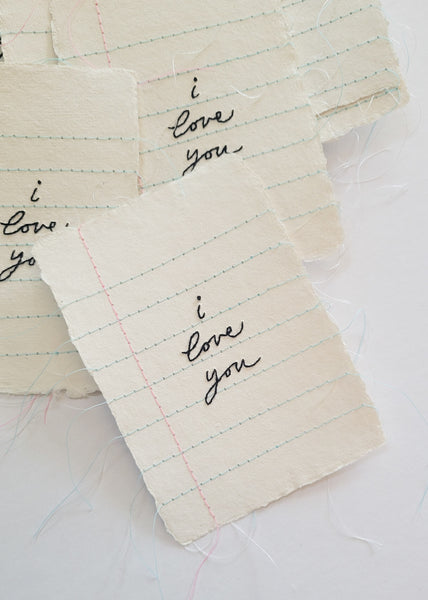 i
love
you
i
love
you
i
love
you